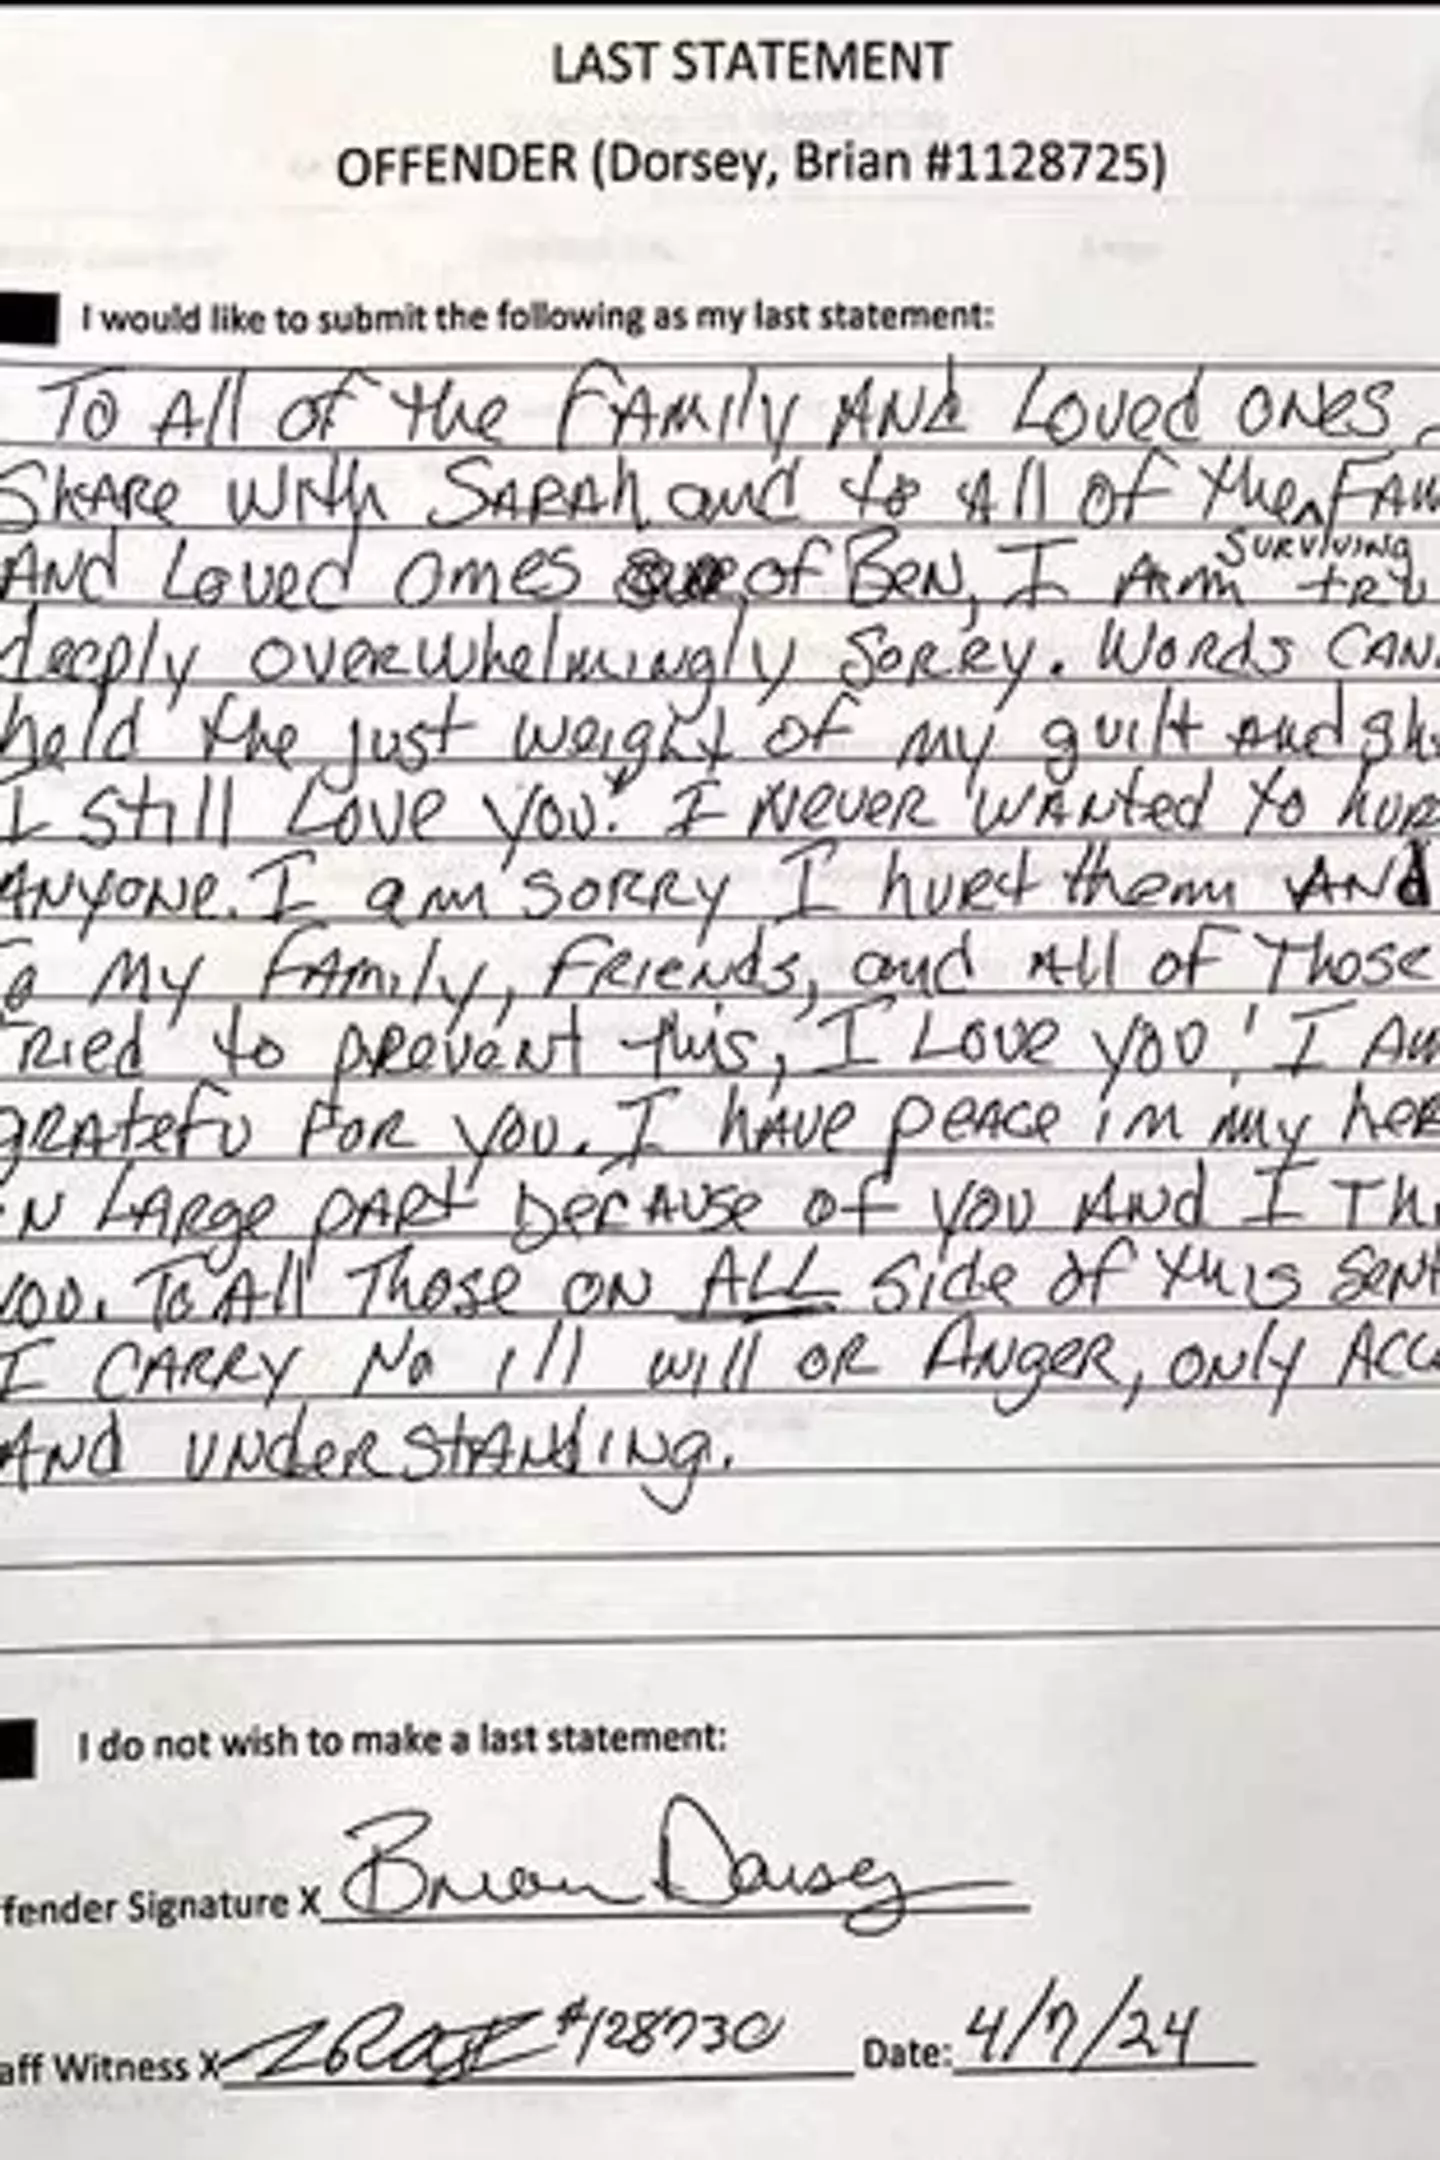 LAST STATEMENT
OFFENDER (Dorsey, Brian #1128725)
I would like to submit the following as my last statement:
To All of the Family And Loved ones
Share with Sarah and to All of the ^ Fam
surviving
And Loved ones of Ben, I Am tru
deeply overwhelmingly sorry. Words can
hold the just weight of my guilt and sh
I still Love you. I Never wanted to hur
Anyone. I am sorry I hurt them And
To My Family, Friends, and All of Those
Tried to prevent this, I Love you! I Am
gratefu for you. I have peace in my her
in Large part because of you And I Th
you. To All Those on ALL side of this sent
I carry No ill will or Anger, only Acc
And understanding.
I do not wish to make a last statement:
fender Signature X Brian Dorsey
aff Witness X #128730 Date: 4/7/24